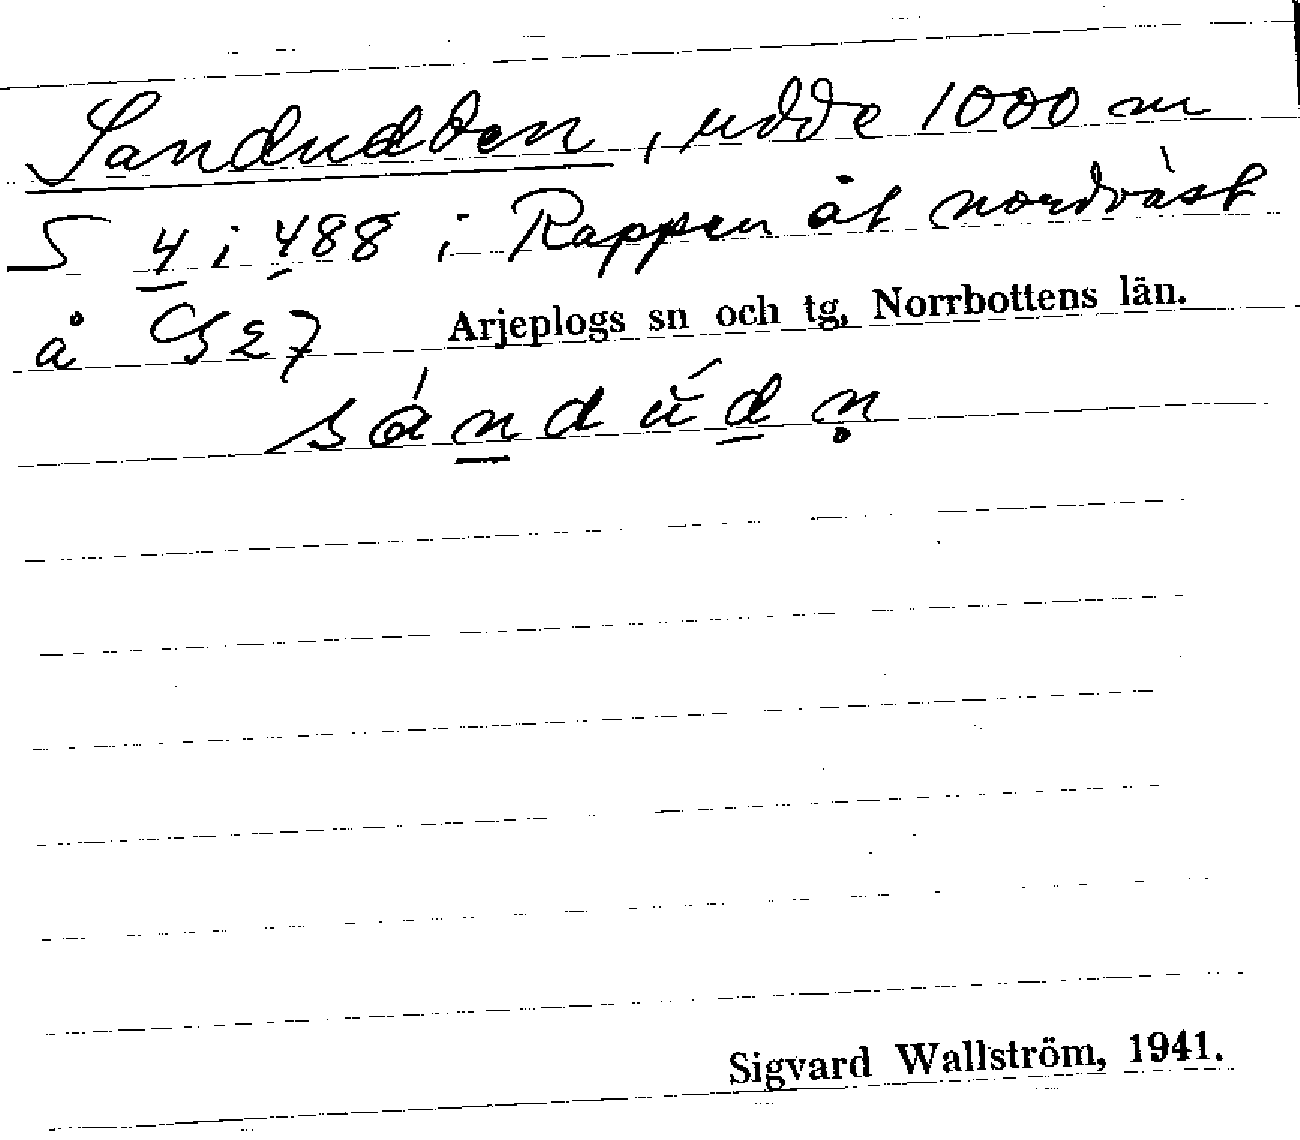 Sandudden, udde 1000 m
S 4 i 488 i Rappen åt nordväst
å GS27 Arjeplogs sn och tg, Norrbottens län.
sándúdn̥
Sigvard Wallström, 1941.